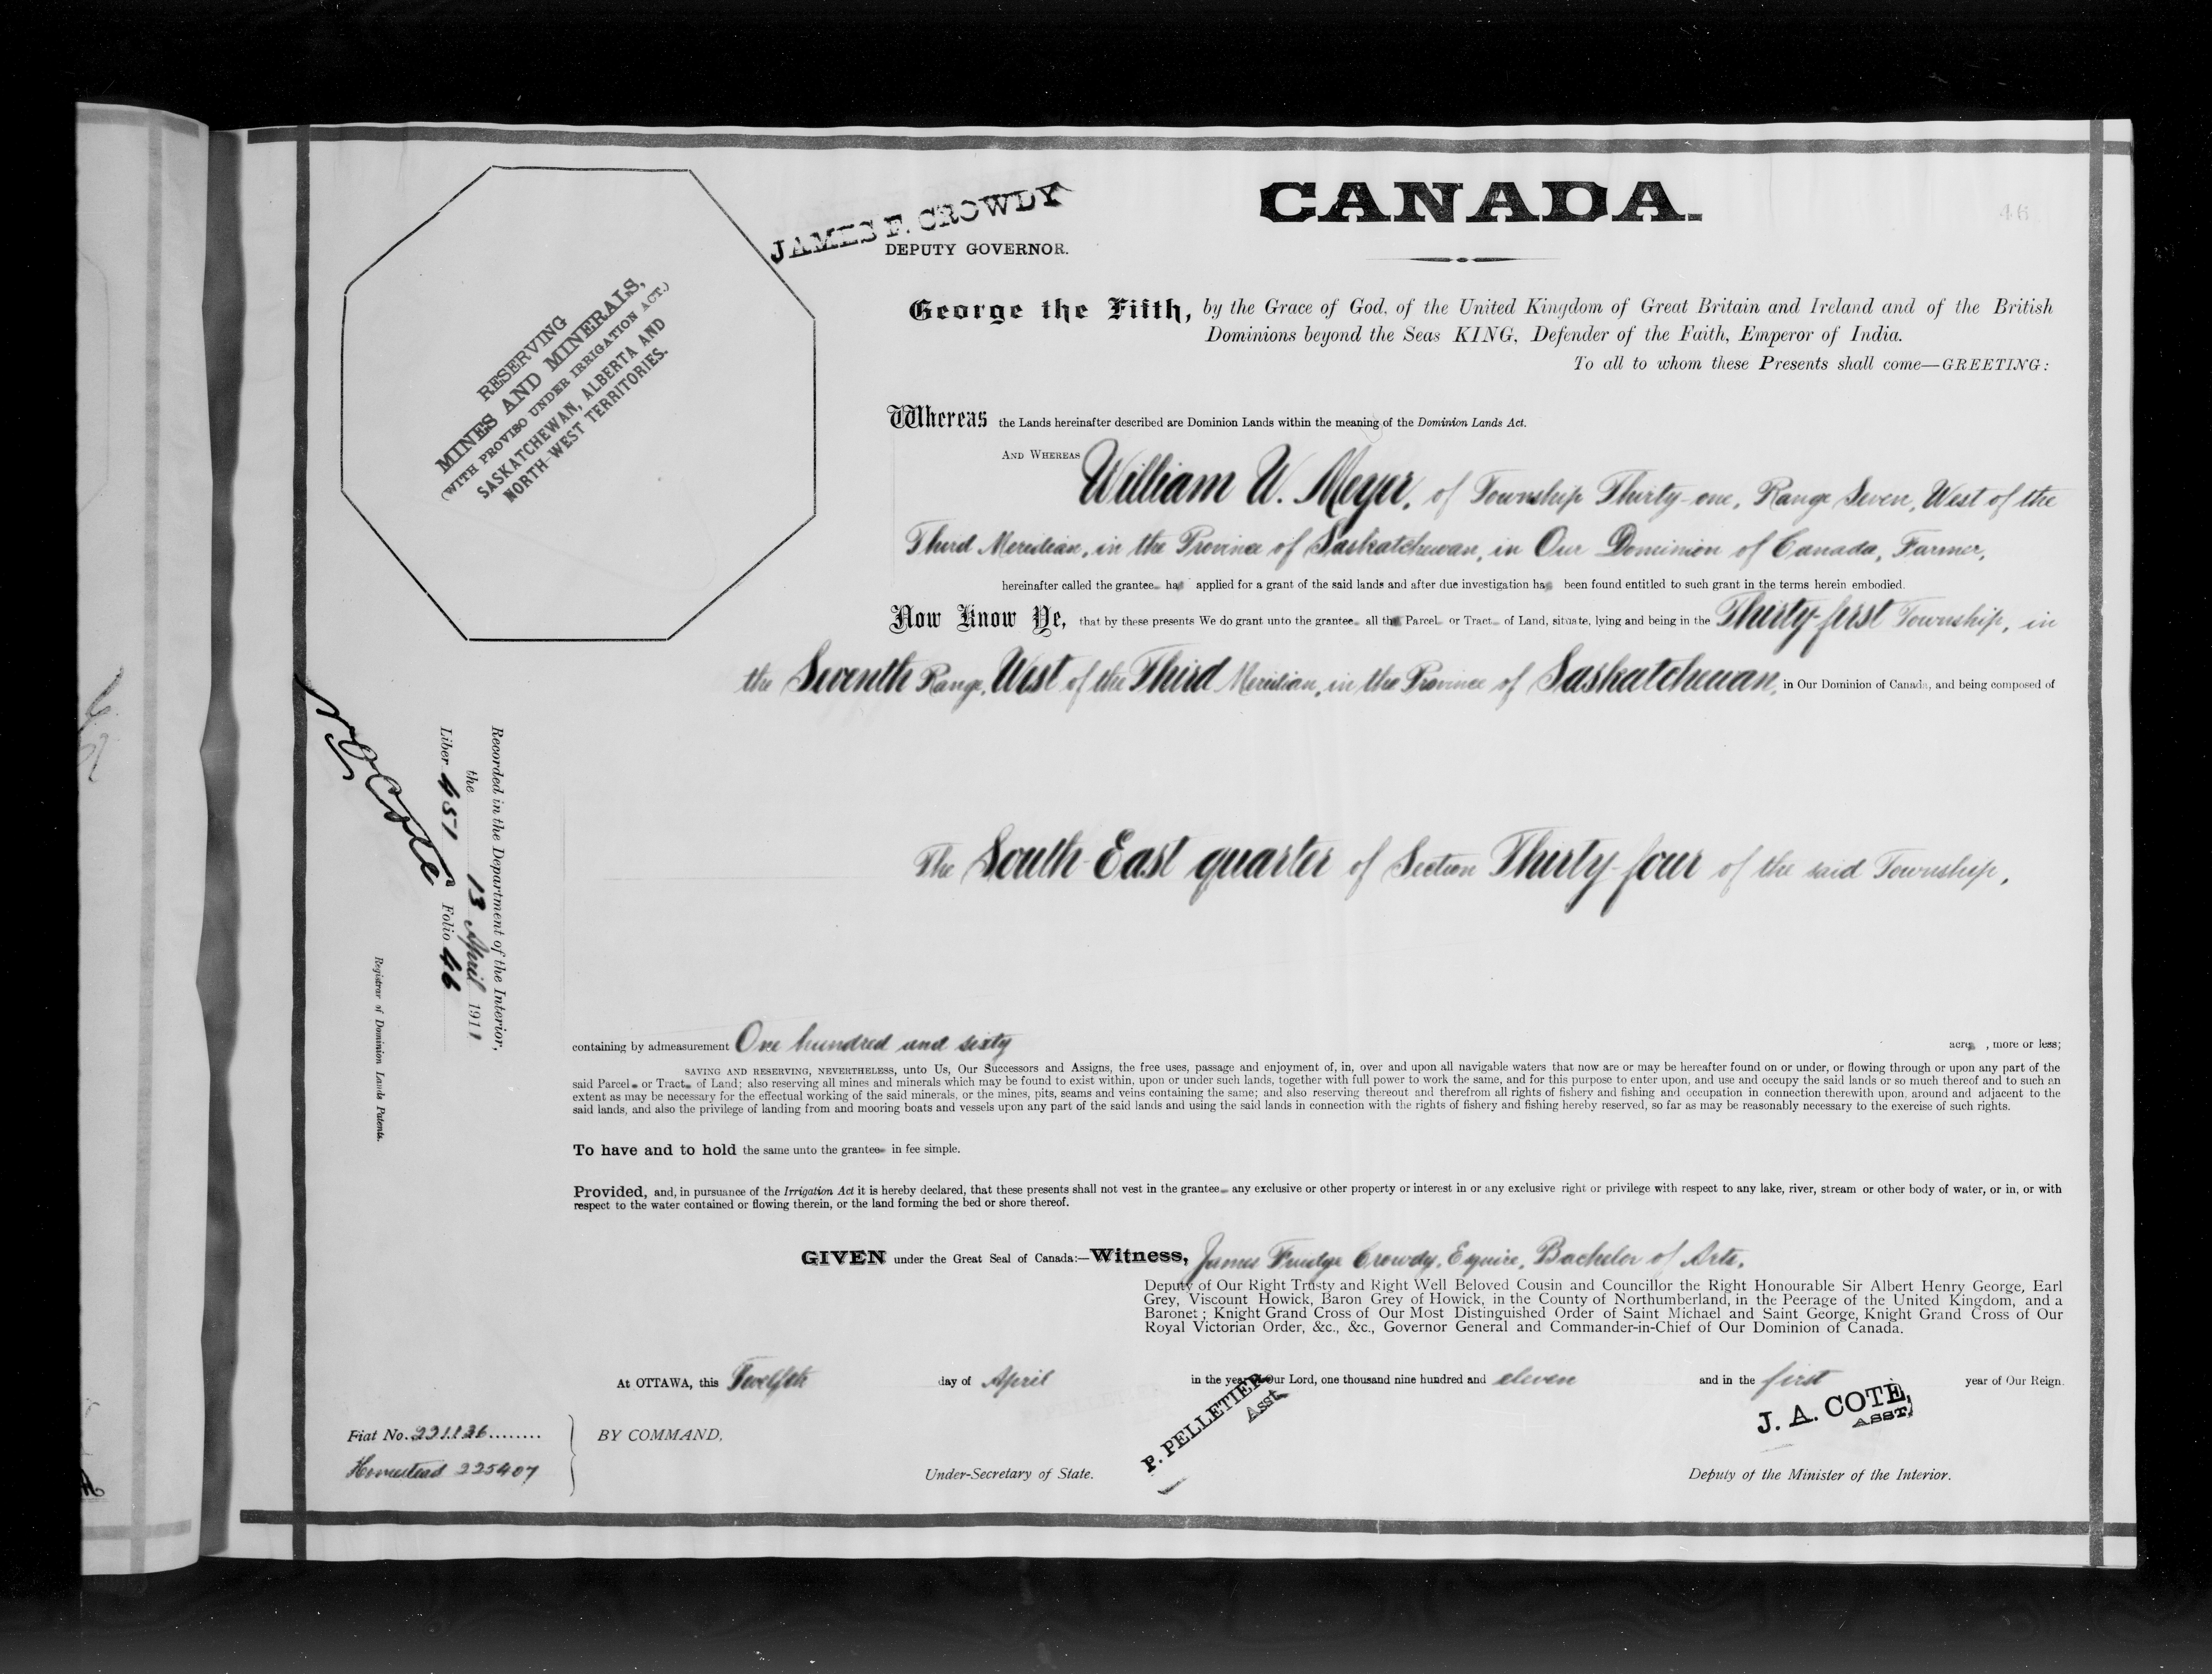 CANADA.
46
JAMES F. CROWDY
DEPUTY GOVERNOR.
RESERVING
MINES AND MINERALS,
(WITH PROVISO UNDER IRRIGATION ACT.)
SASKATCHEWAN, ALBERTA AND
NORTH-WEST TERRITORIES.
George the Fifth, by the Grace of God, of the United Kingdom of Great Britain and Ireland and of the British
Dominions beyond the Seas KING, Defender of the Faith, Emperor of India.
To all to whom these Presents shall come—GREETING:
Whereas the Lands hereinafter described are Dominion Lands within the meaning of the Dominion Lands Act.
AND WHEREAS William W. Meyer, of Township Thirty-one, Range Seven, West of the
Third Meridian, in the Province of Saskatchewan, in Our Dominion of Canada, Farmer,
hereinafter called the grantee has applied for a grant of the said lands and after due investigation has been found entitled to such grant in the terms herein embodied.
Now Know Ye, that by these presents We do grant unto the grantee all that Parcel or Tract of Land, situate, lying and being in the Thirty-first Township, in
the Seventh Range, West of the Third Meridian, in the Province of Saskatchewan, in Our Dominion of Canada, and being composed of
The South-East quarter of Section Thirty-four of the said Township,
Recorded in the Department of the Interior,
the 13 April 1911
Liber 451 Folio 46
N O Coste
Registrar of Dominion Lands Patents.
containing by admeasurement One hundred and sixty acres, more or less;
SAVING AND RESERVING, NEVERTHELESS, unto Us, Our Successors and Assigns, the free uses, passage and enjoyment of, in, over and upon all navigable waters that now are or may be hereafter found on or under, or flowing through or upon any part of the
said Parcel or Tract of Land; also reserving all mines and minerals which may be found to exist within, upon or under such lands, together with full power to work the same, and for this purpose to enter upon, and use and occupy the said lands or so much thereof and to such an
extent as may be necessary for the effectual working of the said minerals, or the mines, pits, seams and veins containing the same; and also reserving thereout and therefrom all rights of fishery and fishing and occupation in connection therewith upon, around and adjacent to the
said lands, and also the privilege of landing from and mooring boats and vessels upon any part of the said lands and using the said lands in connection with the rights of fishery and fishing hereby reserved, so far as may be reasonably necessary to the exercise of such rights.
To have and to hold the same unto the grantee in fee simple.
Provided, and, in pursuance of the Irrigation Act it is hereby declared, that these presents shall not vest in the grantee any exclusive or other property or interest in or any exclusive right or privilege with respect to any lake, river, stream or other body of water, or in, or with
respect to the water contained or flowing therein, or the land forming the bed or shore thereof.
GIVEN under the Great Seal of Canada:—Witness, James Fruidge Crowdy, Esquire, Bachelor of Arts,
Deputy of Our Right Trusty and Right Well Beloved Cousin and Councillor the Right Honourable Sir Albert Henry George, Earl
Grey, Viscount Howick, Baron Grey of Howick, in the County of Northumberland, in the Peerage of the United Kingdom, and a
Baronet; Knight Grand Cross of Our Most Distinguished Order of Saint Michael and Saint George, Knight Grand Cross of Our
Royal Victorian Order, &c., &c., Governor General and Commander-in-Chief of Our Dominion of Canada.
At OTTAWA, this Twelfth day of April in the year of Our Lord, one thousand nine hundred and eleven and in the first year of Our Reign.
Fiat No. 221136
Homestead 225407
BY COMMAND,
P. PELLETIER
Asst
Under-Secretary of State.
J. A. COTE,
ASST,
Deputy of the Minister of the Interior.